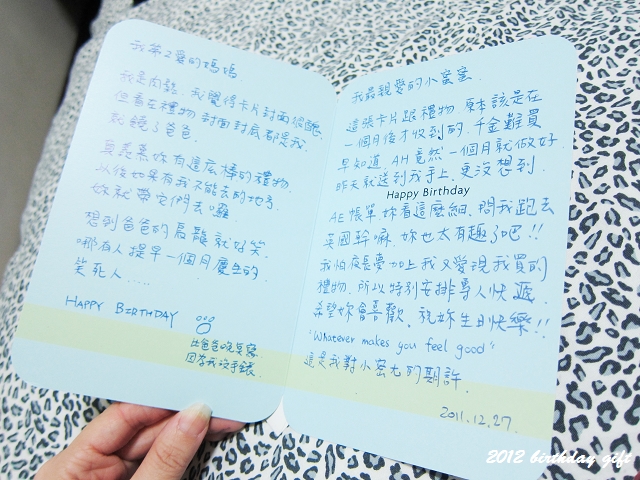 我第2愛的媽媽
我是肉語.我覺得卡片封面很醜
但看在禮物封面封底都是我.
就饒了爸爸.
真羨慕妳有這麼棒的禮物.
以後如果有我不能去的地方
妳就帶它們去囉.
想到爸爸的烏龍就好笑.
哪有人提早一個月慶生的
笑死人.....
HAPPY BIRTHDAY
比爸爸晚
因為我沒手錶.
我最親愛的小蜜蜜.
這張卡片跟禮物 原本該是在
一個月後才收到的.千金難買
早知道. AH竟然一個月就做好.
昨天就送到我手上.更沒想到.
Happy Birthday
AE帳單妳看這麼細.問我跑去
英國幹嘛.妳也太有趣了吧!!
我怕夜長夢多加上我又愛現我買的
禮物.所以特別安排專人快遞.
希望妳會喜歡.祝妳生日快樂!!
"Whatever makes you feel good"
這是我對小蜜尤的期許.
2011.12.27.
2012 birthday gift